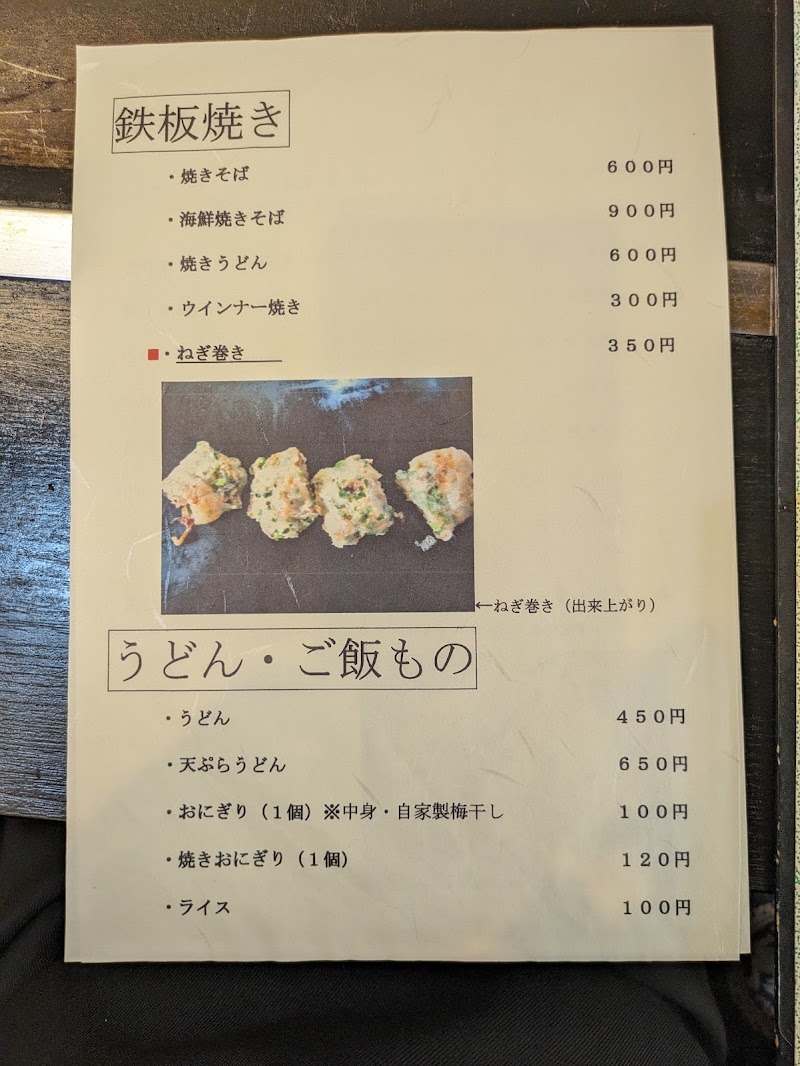 鉄板焼き
・焼きそば ６００円
・海鮮焼きそば ９００円
・焼きうどん ６００円
・ウインナー焼き ３００円
■・ねぎ巻き ３５０円
←ねぎ巻き（出来上がり）
うどん・ご飯もの
・うどん ４５０円
・天ぷらうどん ６５０円
・おにぎり（１個）※中身・自家製梅干し １００円
・焼きおにぎり（１個） １２０円
・ライス １００円